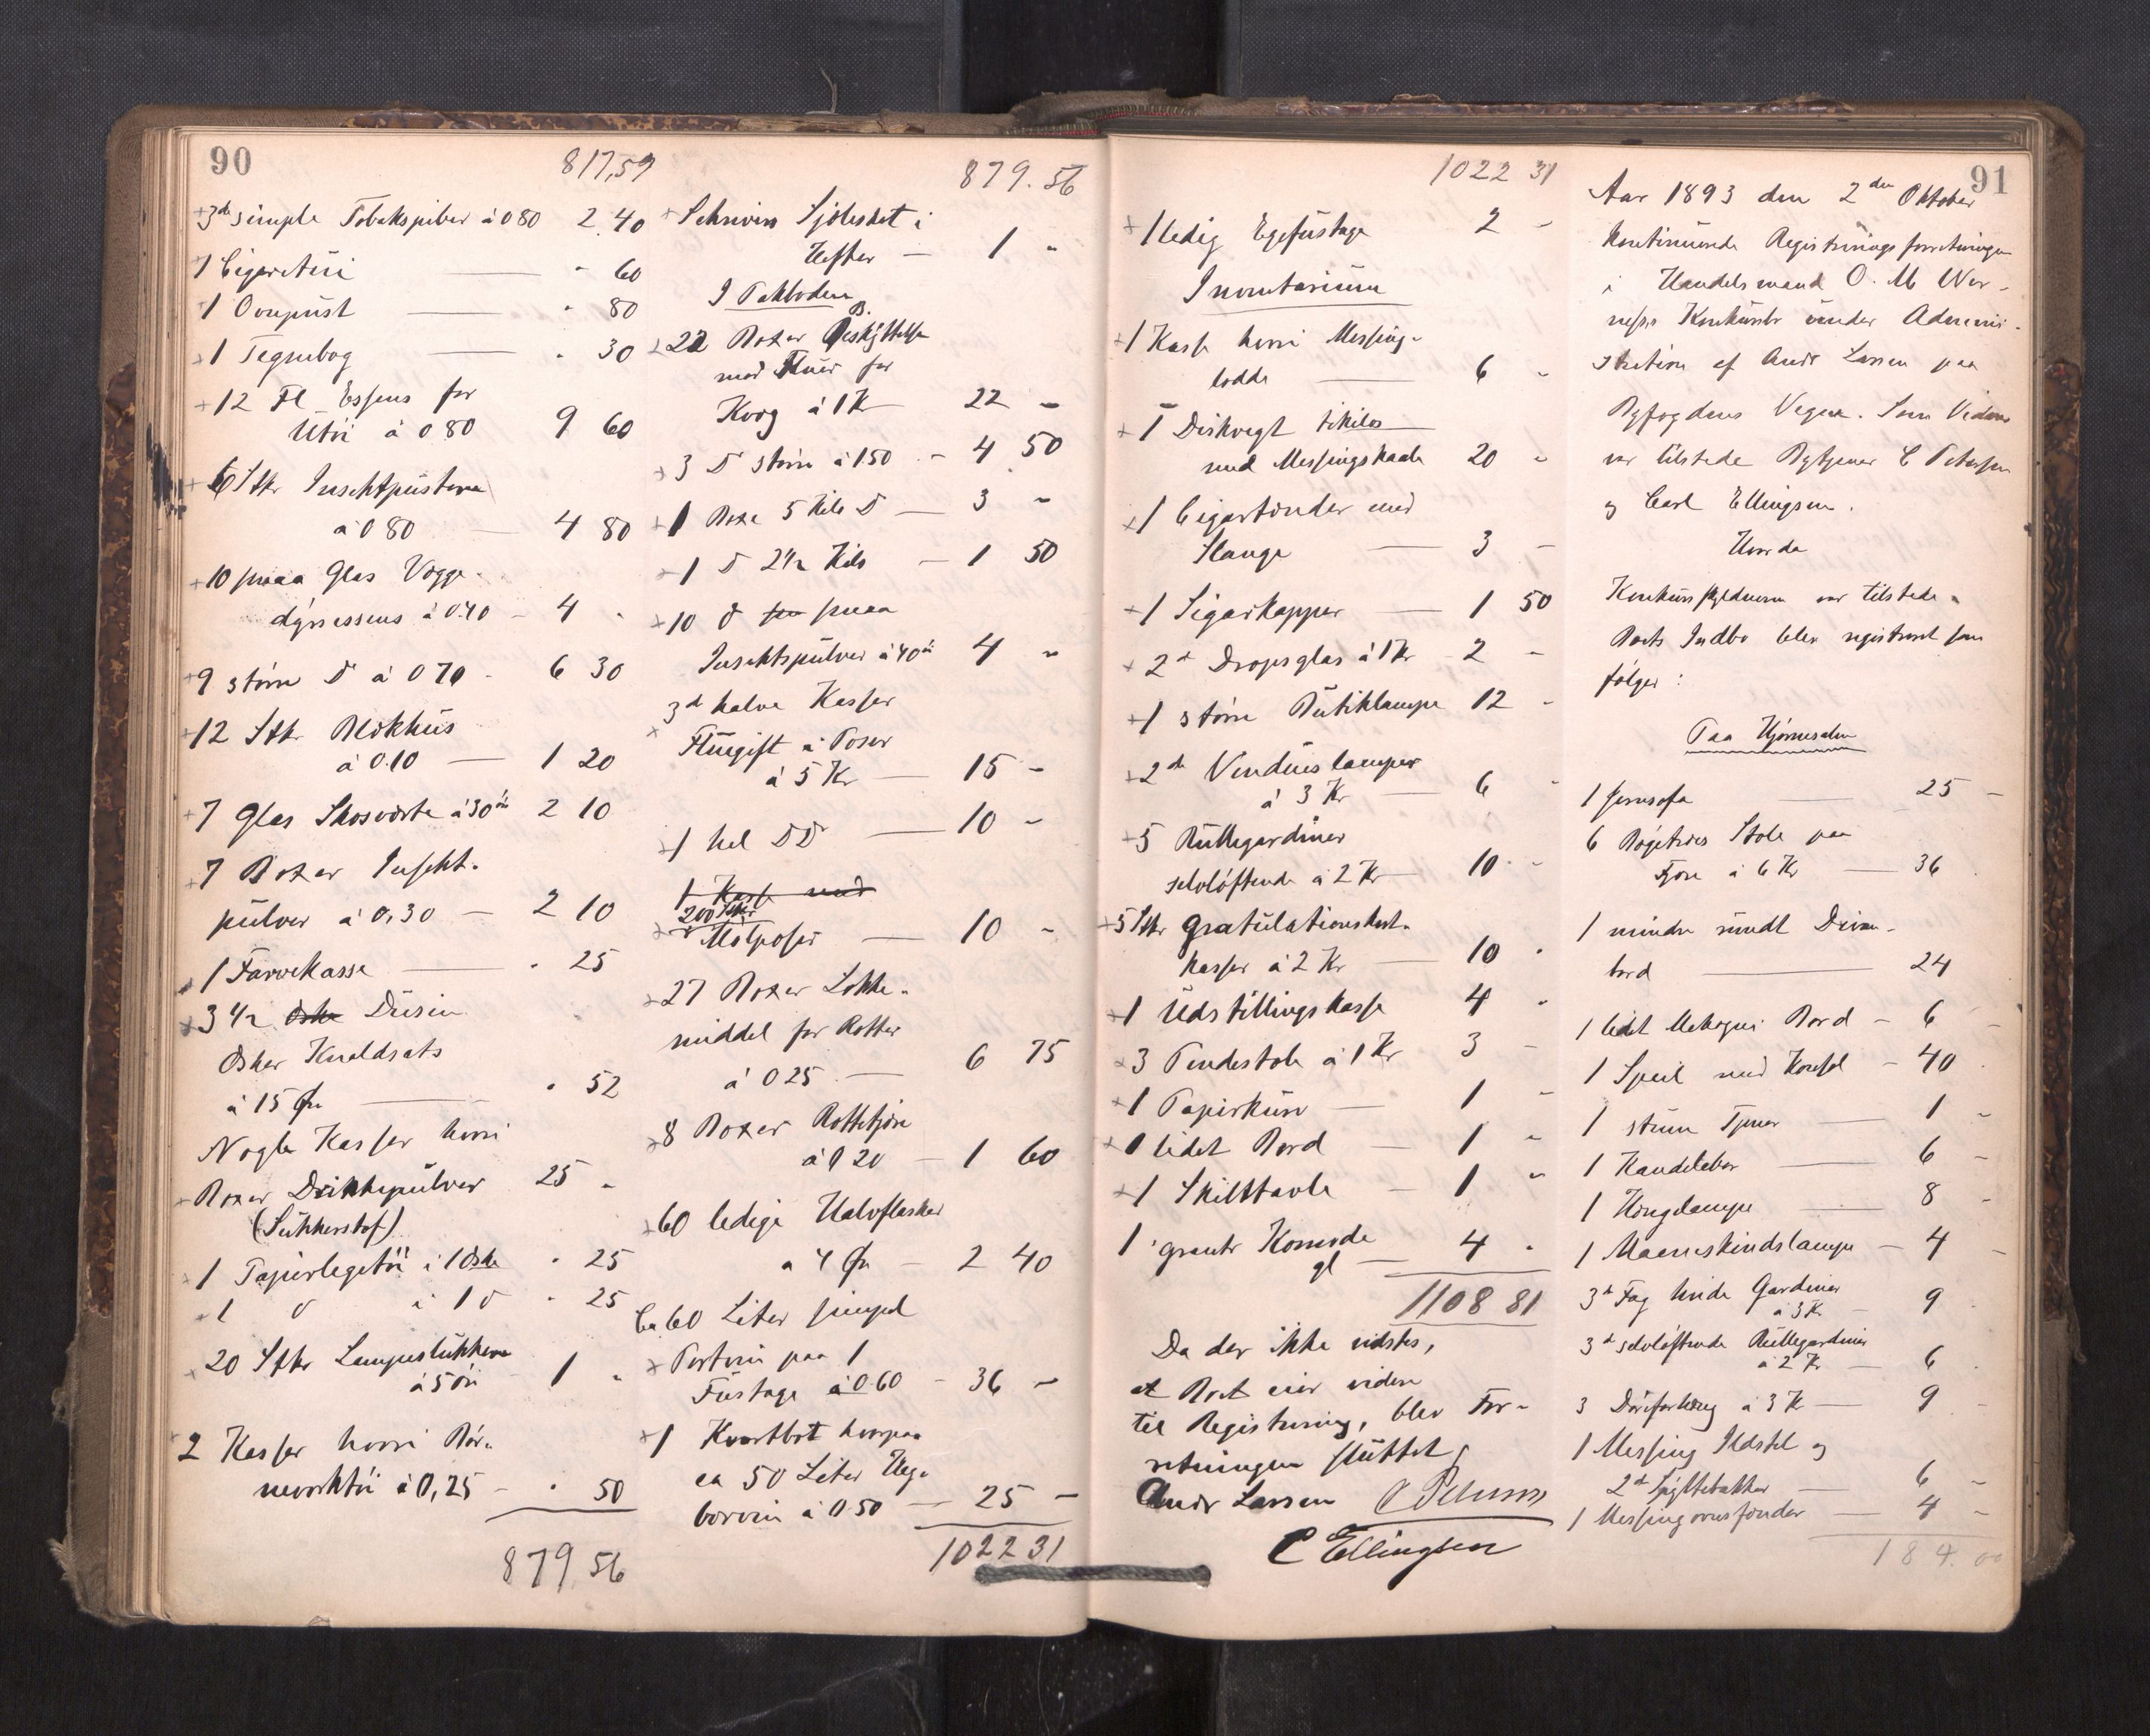 90
817,59
3de simple Tobakspiber à 0 80 2 40
1 Cigaretüi - 60
1 Ovnpüst - 80
1 Tegnebog - 30
12 Fl Essens for
Utøi à 0 80 9 60
6 Stkr Insektpüstere
à 0 80 4 80
10 smaa Glas Vægge-
dyrsessens à 0.40 - 4 -
9 større D à 0 70 - 6 30
12 Stkr Blokhüs
à 0.10 1 20
7 Glas Skosværte à 30 ør 2 10
7 Boxer Insekt-
pülver à 0,30 2 10
1 Farvekasse - 25
3 1/2 Æske Düsin
Æsker Knaldsats
à 15 Øre - 52
Nogle Kasser hvori
Boxer Drikkepülver 25 -
(Sükkerstof)
1 Papirlegetøi i 1 Æske - 25
1 D i 1 D - 25
20 Stkr Lampeslükkere
à 5 øre 1 -
2 Kasser hvori Bar-
neværktøi à 0,25 - 50
879.56
879.56
Skrivers Sjøleskat i
Hefter 1 -
I Pakboden
22 Boxer Beskyttelse
mod Flüer for
Kvæg à 1 K 22 -
3 D større à 1.50 - 4 50
1 Boxe 5 Kilo D 3 -
1 D 2 1/2 Kilo 1 50
10 D smaa
Insektspülver à 40 ør 4 -
3d halve Kasser
Flüegift i Poser
à 5 Kr 15 -
1 hel DD 10 -
1 Kasse med
200 Stkr
Mølposer 10 -
27 Boxer Lokke-
middel for Rotter
à 0 25 6 75
8 Boxer Rottefjære
à 0 20 1 60
60 ledige Halvflasker
a 4 Øre 2 40
Ca 60 Liter simpel
Portvin paa 1
Füstage à 0.60 - 36 -
1 Kvartbøt hvorpaa
ca 50 Liter Üeg-
borvin à 0.50 25 -
1022 31
91
1022 31
1 ledig Egefüstage 2 -
Inventarium
1 Kasse hvori Messing-
lodder 6 -
1 Diskvegt tikilos
med Messingskaale 20 -
1 Cigartænder med
Slange 3 -
1 Sigarkapper 1 50
2d Dropsglas à 1 Kr 2 -
1 større Bütiklampe 12 -
2de Vindüslamper
à 3 Kr 6 -
5 Rüllegardiner
selvløftende à 2 Kr 10 -
5 Stkr Gratülationskort-
kasser à 2 Kr 10 -
1 Üdstillingskasse 4 -
3 Pindestole à 1 Kr 3 -
1 Papirkürv 1 -
1 lidet Bord 1 -
1 Skilttavle 1 -
1 grønt Komode
gl 4 -
1108 81
Da der ikke vidstes,
at Boet eier videre
til Registrering, blev For-
retningen slüttet
Andr Larsen C Petersen
C Ellingsen
Aar 1893 den 2den Oktober
kontinüerede Registreringsforretningen
i Handelsmand O. M. Wer-
ness Konkürsbo ünder Admini-
stration af Andr Larsen paa
Byfogdens Vegne. Som Vidner
var tilstede Bytjener C Petersen
og Carl Ellingsen.
Hvorda
Konkürsskyldneren var tilstede.
Boets Indbo blev registreret som
følger:
Paa Hjørnesalen
1 Jernsofa 25 -
6 Bøgetræs Stole paa
Fjære à 6 Kr 36
1 mindre ründt Divan-
bord 24
1 lidet Mahogni Bord - 6 -
1 Speil med Konsol - 40
1 stüm Tjener 1 -
1 Kandelaber 6 -
1 Hængelampe 8 -
1 Maaneskindslampe - 4 -
3d Fag hvide Gardiner
a 3 K 9
3d selvløftende Rüllegardiner
à 2 Kr 6
3 Dørforhæng à 3 K 9 -
1 Messing Ildstel og
2d Spyttebakker 6 -
1 Messingovnsfonder 4 -
184.00